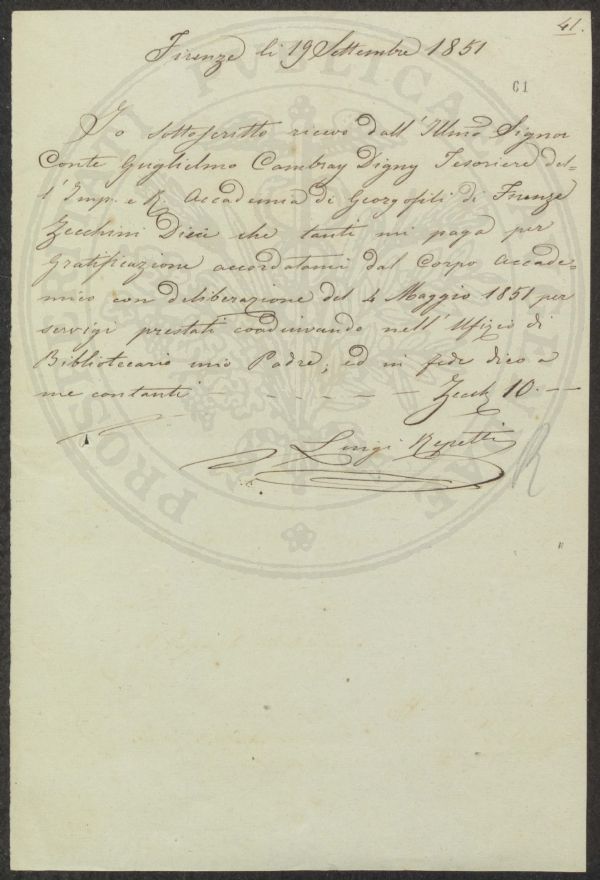 41.
Firenze li 19 Settembre 1851
61
Io sottoscritto ricevo dall'Illmo Signor
Conte Guglielmo Cambray Digny Tesoriere del=
l'Imp. e R. Accademia di Georgofili di Firenze
Zecchini Dieci che tanti mi paga per
Gratificazione accordatami dal Corpo Accade=
mico con deliberazione del 4 Maggio 1851 per
servigi prestati coadiuvando nell'Ufizio di
Bibliotecario mio Padre, ed in fede dico a
me contanti - - - - - - Zecch 10. -
Luigi Repetti
R
PROSPERITATI PUBLICAE